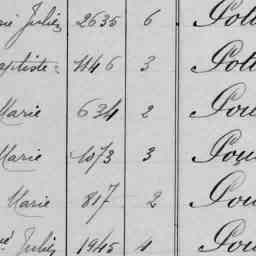 Julie 2635 6 Pott
aptiste 1146 3 Pott
Marie 634 2 Pou
Marie 1073 3 Pou
Marie 817 2 Pou
Julie 1945 4 Pou